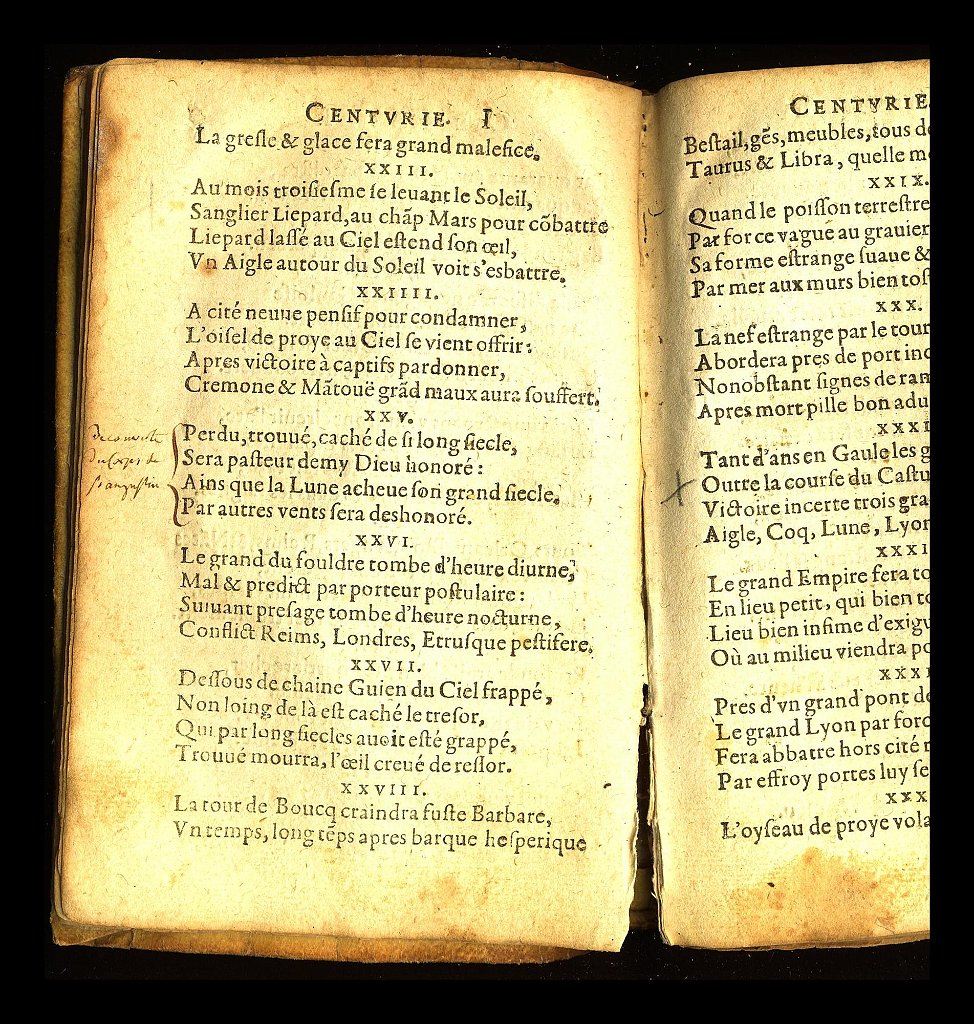 CENTVRIE. I
La gresle & glace fera grand malefice.
XXIII.
Au mois troisiesme se leuant le Soleil,
Sanglier Liepard, au chãp Mars pour cõbattre
Liepard lassé au Ciel estend son œil,
Vn Aigle autour du Soleil voit s'esbattre.
XXIIII.
A cité neuue pensif pour condamner,
L'oisel de proye au Ciel se vient offrir:
Apres victoire à captifs pardonner,
Cremone & Mãtouë grãd maux aura souffert.
XXV.
Perdu, trouué, caché de si long siecle,
Sera pasteur demy Dieu honoré:
Ains que la Lune acheue son grand siecle,
Par autres vents sera deshonoré.
decouverte
du corps de
st augustin
XXVI.
Le grand du fouldre tombe d'heure diurne,
Mal & predict par porteur postulaire:
Suiuant presage tombe d'heure nocturne,
Conflict Reims, Londres, Etrusque pestifere.
XXVII.
Dessous de chaine Guien du Ciel frappé,
Non loing de là est caché le tresor,
Qui par long siecles auoit esté grappé,
Trouué mourra, l'œil creué de ressor.
XXVIII.
La tour de Boucq craindra fuste Barbare,
Vn temps, long tẽps apres barque hesperique
CENTVRIE
Bestail, gẽs, meubles, tous
Taurus & Libra, quelle
XXIX.
Quand le poisson terrestre
Par force vague au grauier
Sa forme estrange suaue &
Par mer aux murs bien
XXX.
La nef estrange par le
Abordera pres de port
Nonobstant signes de
Apres mort pille bon
XXXI
Tant d'ans en Gaule les
Outre la course du
Victoire incerte trois
Aigle, Coq, Lune, Lyon
XXXI
Le grand Empire fera
En lieu petit, qui bien
Lieu bien infime
Où au milieu viendra
XXXI
Pres d'vn grand pont
Le grand Lyon par
Fera abbatre hors cité
Par effroy portes luy
XXX
L'oyseau de proye